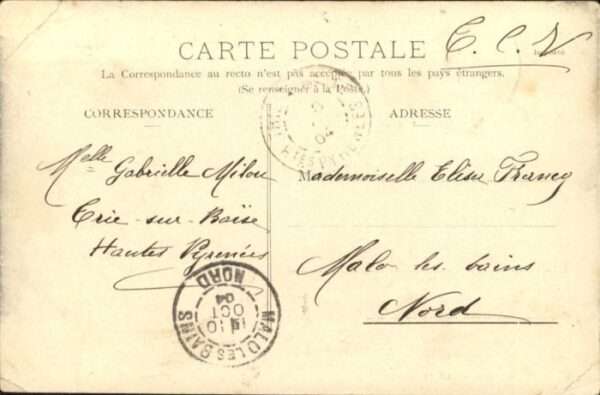 CARTE POSTALE
T. C. V
La Correspondance au recto n'est pas acceptée par tous les pays étrangers.
(Se renseigner à la Poste.)
CORRESPONDANCE
ADRESSE
Melle Gabrielle Milou
Trie-sur-Baïse
Hautes Pyrénées
Mademoiselle Elise Francq
Malo les bains
Nord
04
Htes PYRENEES
MALO LES BAINS
10
OCT
04
NORD